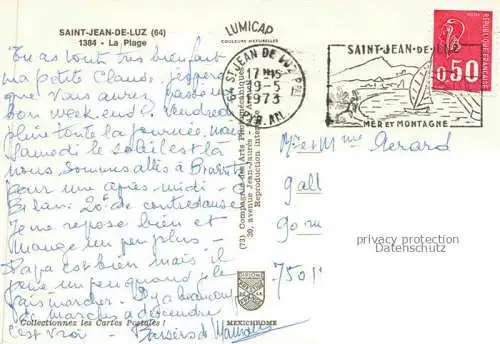 SAINT-JEAN-DE-LUZ (64)
1384 - La Plage
LUMICAP
COULEURS NATURELLES
Tu as tout très bien fait
ma petite Claude, j'espère
que vous aurez passé un
bon week end. Vendredi
pluie toute la journée,
Samedi le soleil est là
nous sommes allés à
pour une après-midi -
Bilan 20f de contredanse
Je me repose bien et
mange un peu plus -
Papa est bien mais il
peu quand je le
fais marcher. Déjà beaucoup
de marches à descendre
c'est vrai - Baisers de
Collectionnez les Cartes Postales !
(73) Compagnie des Arts Photomécaniques
30, avenue Jean-Jaurès
Reproduction
MEXICHROME
64 ST JEAN DE LUZ
17H15
9-5
1973
PYR. ATL.
SAINT-JEAN-DE-LUZ
MER et MONTAGNE
REPUBLIQUE FRANCAISE
0,50
Mr et Mme Gerard
privacy protection
Datenschutz
750